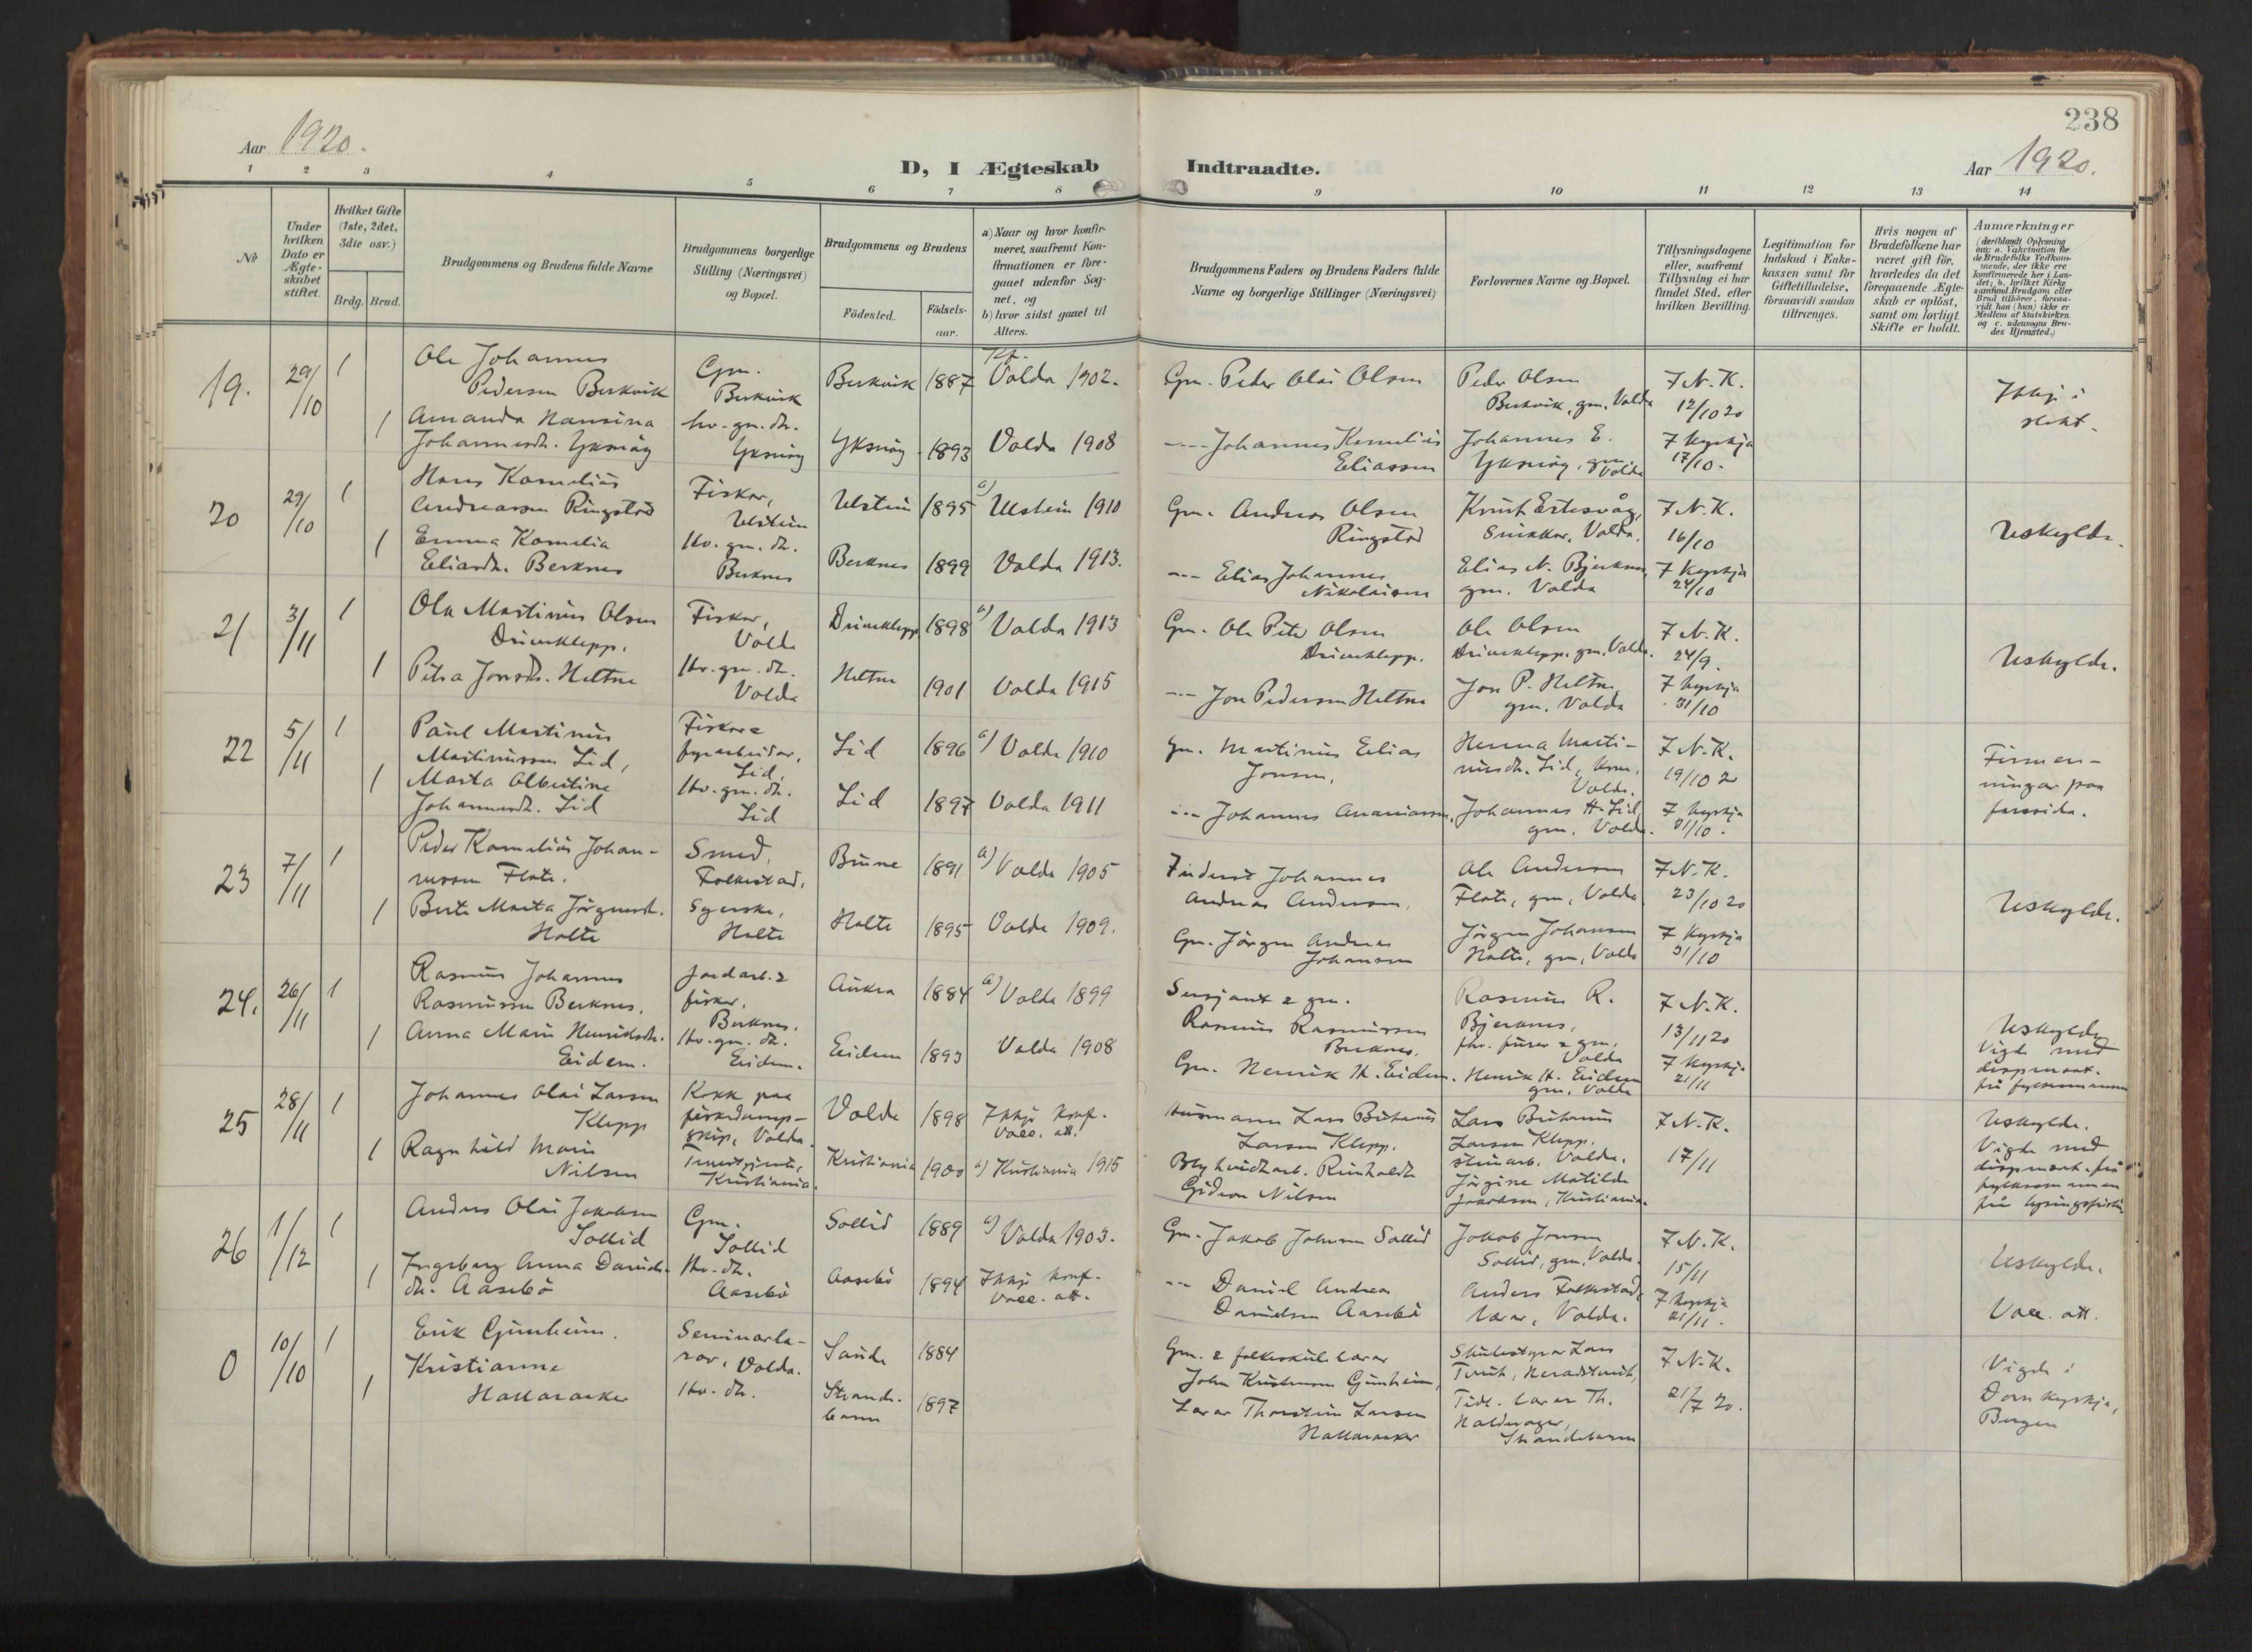 238
Aar 1920.
D, I Ægteskab Indtraadte.
Aar 1920.
1 2 3 4 5 6 7 8 9 10 11 12 13 14
No
Under hvilken Dato er Ægteskabet stiftet.
Hvilket Gifte (1ste, 2det, 3die osv.)
Brdg. Brud.
Brudgommens og Brudens fulde Navne
Brudgommens borgerlige Stilling (Næringsvei) og Bopæl.
Brudgommens og Brudens
Födested.
Födsels-aar.
a) Naar og hvor konfirmeret, saafremt Konfirmationen er foregaaet udenfor Sognet, og
b) hvor sidst gaaet til Alters.
Brudgommens Faders og Brudens Faders fulde Navne og borgerlige Stillinger (Næringsvei)
Forlovernes Navne og Bopæl.
Tillysningsdagene eller, saafremt Tillysning ei har fundet Sted, efter hvilken Bevilling.
Legitimation for Indskud i Enkekassen samt for Giftetilladelse, forsaavidt saadan tiltrænges.
Hvis nogen af Brudefolkene har været gift för, hvorledes da det foregaaende Ægteskab er oplöst, samt om lovligt Skifte er holdt.
Anmærkninger
(deriblandt Oplysning om: a. Vakcination for de Brudefolks Vedkommende, der ikke ere konfirmerede her i Landet; b. hvilket Kirkesamfund Brudgom eller Brud tilhörer, forsaavidt han (hun) ikke er Medlem af Statskirken og c. udensogns Brudes Hjemsted.)
19. 29/10 1
Ole Johannes
Pedersen Berkvik
Gm.
Berkvik
Berkvik 1887
Kf.
Volda 1902.
Gm. Peder Olai Olsen
Peder Olsen
Berkvik, gm. Volda
7 N. K.
12/10 20
Ikkje i
slekt.
1
Amanda Hansina
Johannesdt. Yksnöy
hv. gm. dt.
Yksnöy
Yksnöy 1893 Volda 1908
--- Johannes Kornelius
Eliassen
Johannes E.
Yksnöy, gm. Volda
7 kyrkja
17/10.
20 29/10 1
Hans Kornelius
Andreassen Ringstad
Fiskar,
Ulstein
Ulstein 1895 a) Ulstein 1910
Gm. Andreas Olsen
Ringstad
Knut Ertesvåg,
Snikkar, Volda.
7 N. K.
16/10
Uskylde.
1
Emma Kornelia
Eliasdt. Berknes
Hv. gm. dt.
Berknes
Berknes 1899 Volda 1913.
--- Elias Johannes
Nikolaisen
Elias N. Bjerknes,
gm. Volda
7 kyrkja
24/10
21 3/11 1
Ola Martinus Olsen
Driveklepp.
Fiskar,
Volda
Driveklepp 1898 a) Volda 1913
Gm. Ole Peter Olsen
Driveklepp.
Ole Olsen
Driveklepp, gm. Volda.
7 N. K.
24/9.
Uskylde.
1
Petra Jonsdt. Heltne
Hv. gm. dt.
Volda
Heltne 1901 Volda 1915
--- Jon Pedersen Heltne
Jon P. Heltne,
gm. Volda
7 kyrkja
31/10
22 5/11 1
Paul Martinus
Martinussen Lid,
Fiskar &
fyrarbeidar,
Lid,
Lid 1896 a) Volda 1910
Gm. Martinus Elias
Jonsen,
Henna Marti-
nusdt. Lid,
Volda.
7 N. K.
19/10 20
Firmen-
ningar paa
farssida.
1
Marta Albertine
Johannesdt. Lid
Hv. gm. dt.
Lid
Lid 1897 Volda 1911
--- Johannes Ananiassen,
Johannes A. Lid,
gm. Volda.
7 kyrkja
31/10.
23 7/11 1
Peder Kornelius Johan-
nessen Flote.
Smed,
Folkestad.
Brune 1891 a) Volda 1905
Johannes
Andreas Andersen,
Ole Andersen
Flote, gm, Volda
7 N. K.
23/10 20
Uskylde.
1
Berte Marta Jörgensdt.
Holte
Syerske,
Holte
Holte 1895 Volda 1909.
Gm. Jörgen Andreas
Johansen
Jörgen Johansen
Holte, gm, Volda
7 kyrkja
31/10
24. 26/11 1
Rasmus Johannes
Rasmussen Berknes.
Jordarb. &
fiskar.
Berknes.
Aukra 1884 a) Volda 1899
Sersjant & gm.
Rasmus Rasmussen
Berknes.
Rasmus R.
Bjerknes,
fhv. furer & gm,
Volda
7 N. K.
13/11 20
Uskylde
Vigde med
dispensat.
frå fylkesmannen
1
Anna Marie Henriksdt.
Eidem.
Hv. gm. dt.
Eidem.
Eidem 1893 Volda 1908
Gm. Henrik H. Eidem.
Henrik H. Eidem
gm. Volda
7 kyrkja
21/11
25 28/11 1
Johannes Olai Larsen
Klepp
Kokk paa
fiskedamp-
skip, Volda.
Volda 1898 Ikkje konf.
Vacc. att.
Husmann Lars Bertianus
Larsen Klepp.
Lars Bertianus
Larsen Klepp.
steinarb. Volda.
7 N. K.
17/11
Uskylde.
Vigde med
dispensat. frå
fylkesmannen
frå lysingsfristen
1
Ragnhild Marie
Nilsen
Kristiania.
Kristiania 1900 a) Kristiania 1915
Blyhvidtarb. Reinholdt
Gideon Nilsen
Jörgine Matilde
Jakobsen, Kristiania.
26 1/12 1
Anders Olai Jakobsen
Sollid
Gm.
Sollid
Sollid 1889 a) Volda 1903.
Gm. Jakob Johnsen Sollid
Jakob Jonsen
Sollid, gm, Volda.
7 N. K.
15/11
Uskylde.
1
Ingeborg Anna Daniels-
dt. Aasebö
Hv. dt.
Aasebö
Aasebö 1894 Ikkje konf.
Vacc. att.
--- Daniel Andreas
Danielsen Aasebö
Anders Folkestad,
lærar, Volda.
7 kyrkja
21/11.
Vacc. att.
0 10/10 1
Erik Gjunheim.
Seminarlæ-
rar, Volda.
Saude 1884
Gm. & folkeskulelærar
John Kristensen Gjunheim,
Skulestyrar Lars
7 N. K.
21/7 20.
Vigde i
Domkyrkja,
Bergen
1
Kristianne
Hallaraaker
Hv. dt.
Strande-
barm 1897
Lærar Thorstein Larsen
Hallaraaker
Tidl. lærar Th.
Haldorager,
Strandebarm